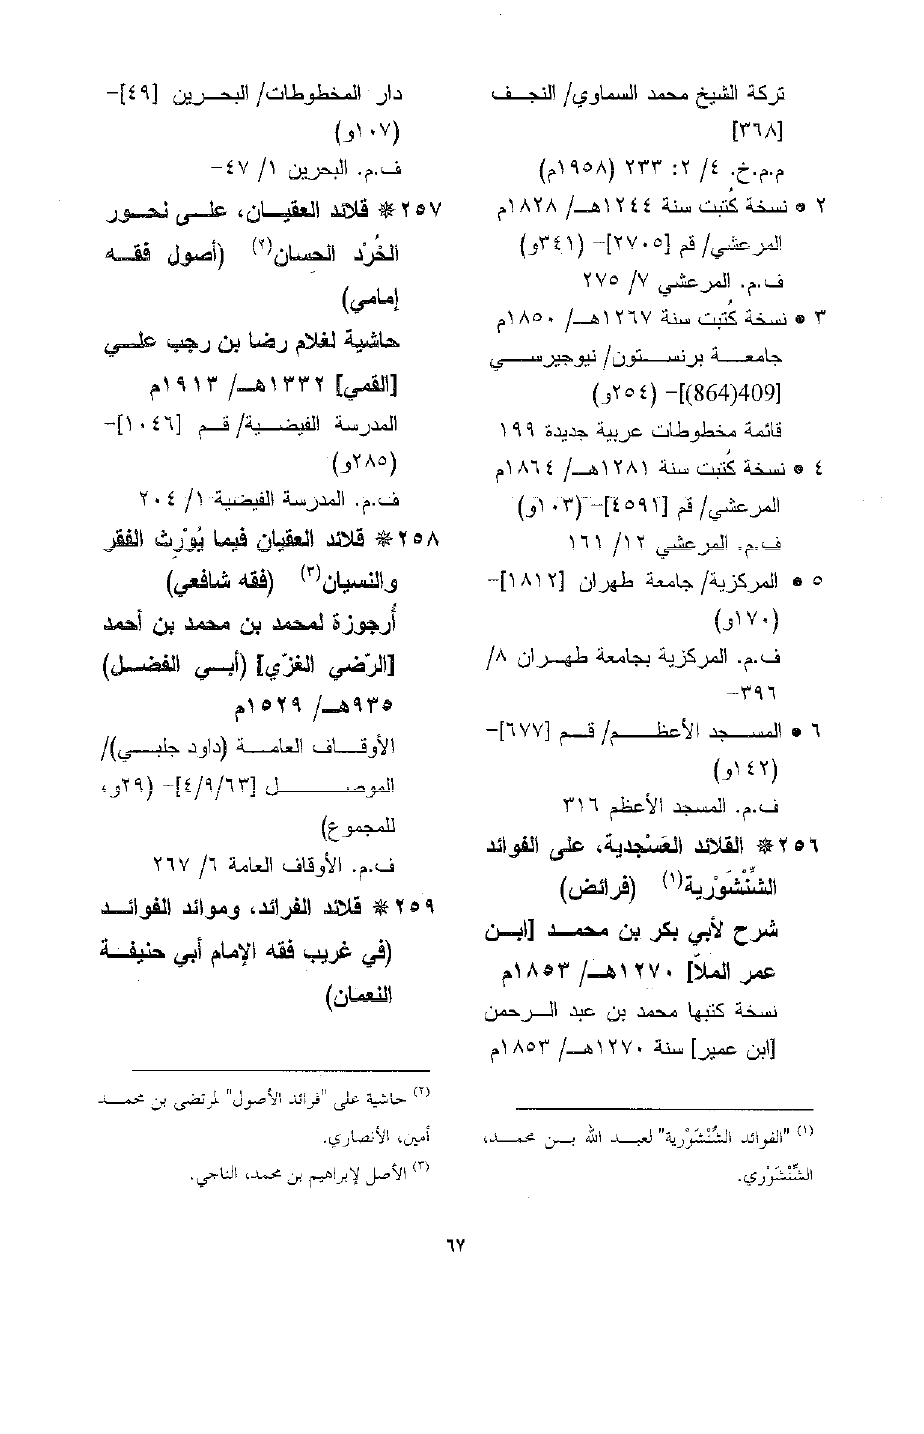 تركة الشيخ محمد السماوي/ النجف
[٣٦٨]
م.م.خ. ٤/ ٢: ٢٣٣ (١٩٥٨م)
٢ • نسخة كُتبت سنة ١٢٤٤هـ/ ١٨٢٨م
المرعشي/ قم [٢٧٠٥]- (٣٤١و)
ف.م. المرعشي ٧/ ٢٧٥
٣ • نسخة كُتبت سنة ١٢٦٧هـ/ ١٨٥٠م
جامعة برنستون/ نيوجيرسي
[409(864)]- (٢٥٤و)
قائمة مخطوطات عربية جديدة ١٩٩
٤ • نسخة كُتبت سنة ١٢٨١هـ/ ١٨٦٤م
المرعشي/ قم [٤٥٩١]- (١٠٣و)
ف.م. المرعشي ١٢/ ١٦١
٥ • المركزية/ جامعة طهران [١٨١٢]-
(١٧٠و)
ف.م. المركزية بجامعة طهران ٨/
٣٩٦-
٦ • المسجد الأعظم/ قم [٦٧٧]-
(١٤٢و)
ف.م. المسجد الأعظم ٣١٦
٢٥٦ * القلائد العَسْجدية، على الفوائد
الشِّنْشَوْرية(١) (فرائض)
شرح لأبي بكر بن محمد [ابن
عمر الملاّ] ١٢٧٠هـ/ ١٨٥٣م
نسخة كتبها محمد بن عبد الرحمن
[ابن عمير] سنة ١٢٧٠هـ/ ١٨٥٣م
(١) "الفوائد الشِّنْشَوْرية" لعبد الله بن محمد،
الشِّنْشَوْري.
دار المخطوطات/ البحرين [٤٩]-
(١٠٧و)
ف.م. البحرين ١/ ٤٧-
٢٥٧ * قلائد العقيان، على نحور
الخُرْد الحسان(٢) (أصول فقه
إمامي)
حاشية لغلام رضا بن رجب علي
[القمي] ١٣٣٢هـ/ ١٩١٣م
المدرسة الفيضية/ قم [١٠٤٦]-
(٢٨٥و)
ف.م. المدرسة الفيضية ١/ ٢٠٤
٢٥٨ * قلائد العقيان فيما يُوْرِث الفقر
والنسيان(٣) (فقه شافعي)
أرجوزة لمحمد بن محمد بن أحمد
[الرّضي الغزّي] (أبي الفضل)
٩٣٥هـ/ ١٥٢٩م
الأوقاف العامة (داود جلبي)/
الموصل [٤/٩/٦٣]- (٢٩و،
للمجموع)
ف.م. الأوقاف العامة ٦/ ٢٦٧
٢٥٩ * قلائد الفرائد، وموائد الفوائد
(في غريب فقه الإمام أبي حنيفة
النعمان)
(٢) حاشية على "فرائد الأصول" لمرتضى بن محمد
أمين، الأنصاري.
(٣) الأصل لإبراهيم بن محمد، الناجي.
٦٧